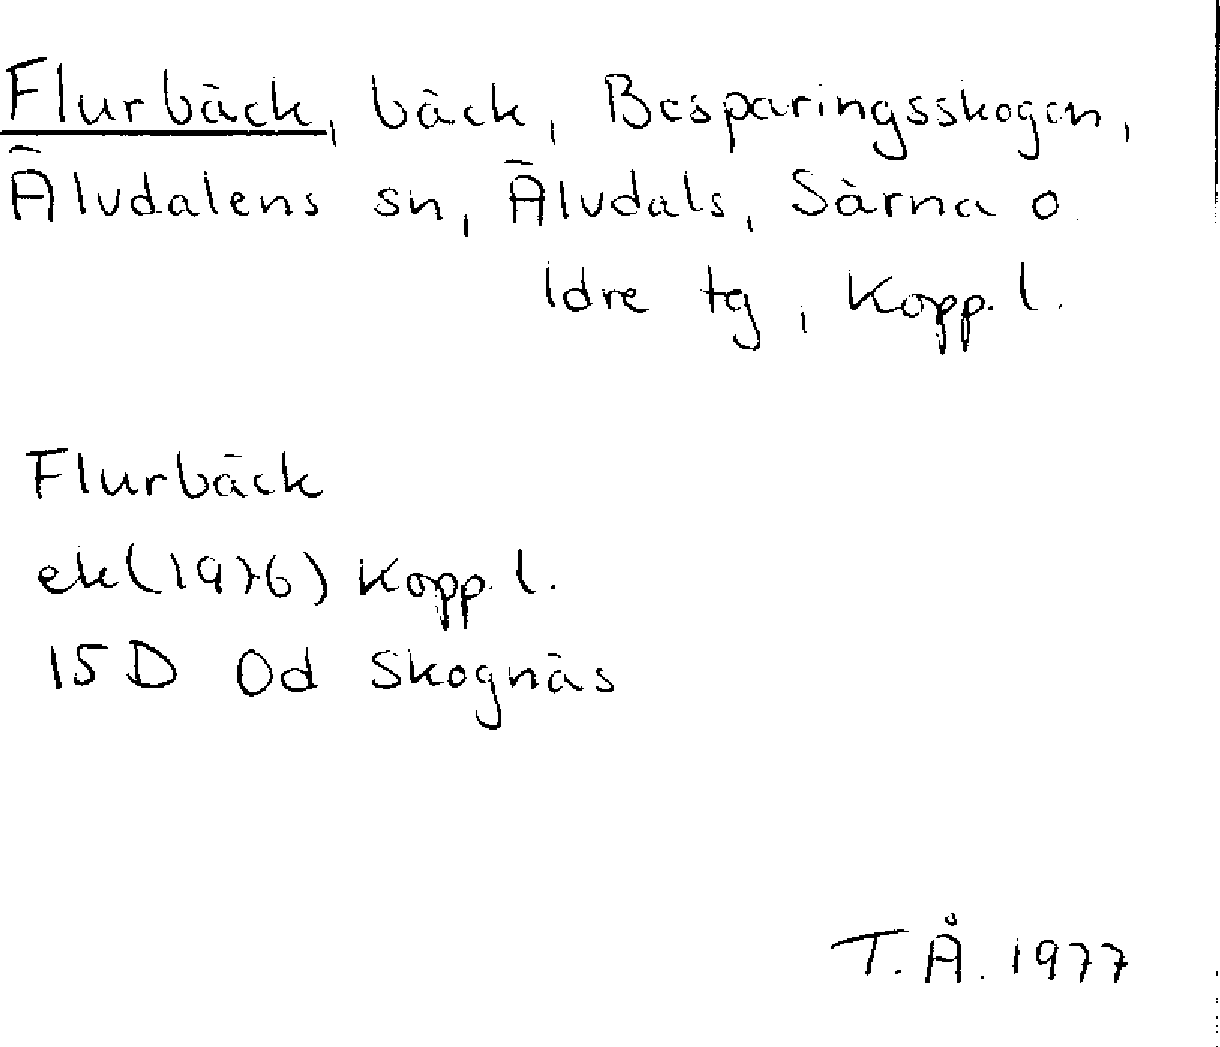 Flurbäck, bäck, Besparingsskogen,
Älvdalens sn, Älvdals, Särna o.
Idre tg, Kopp. l.
Flurbäck
ek(1976) Kopp. l.
15 D 0d Skognäs
T. Å. 1977